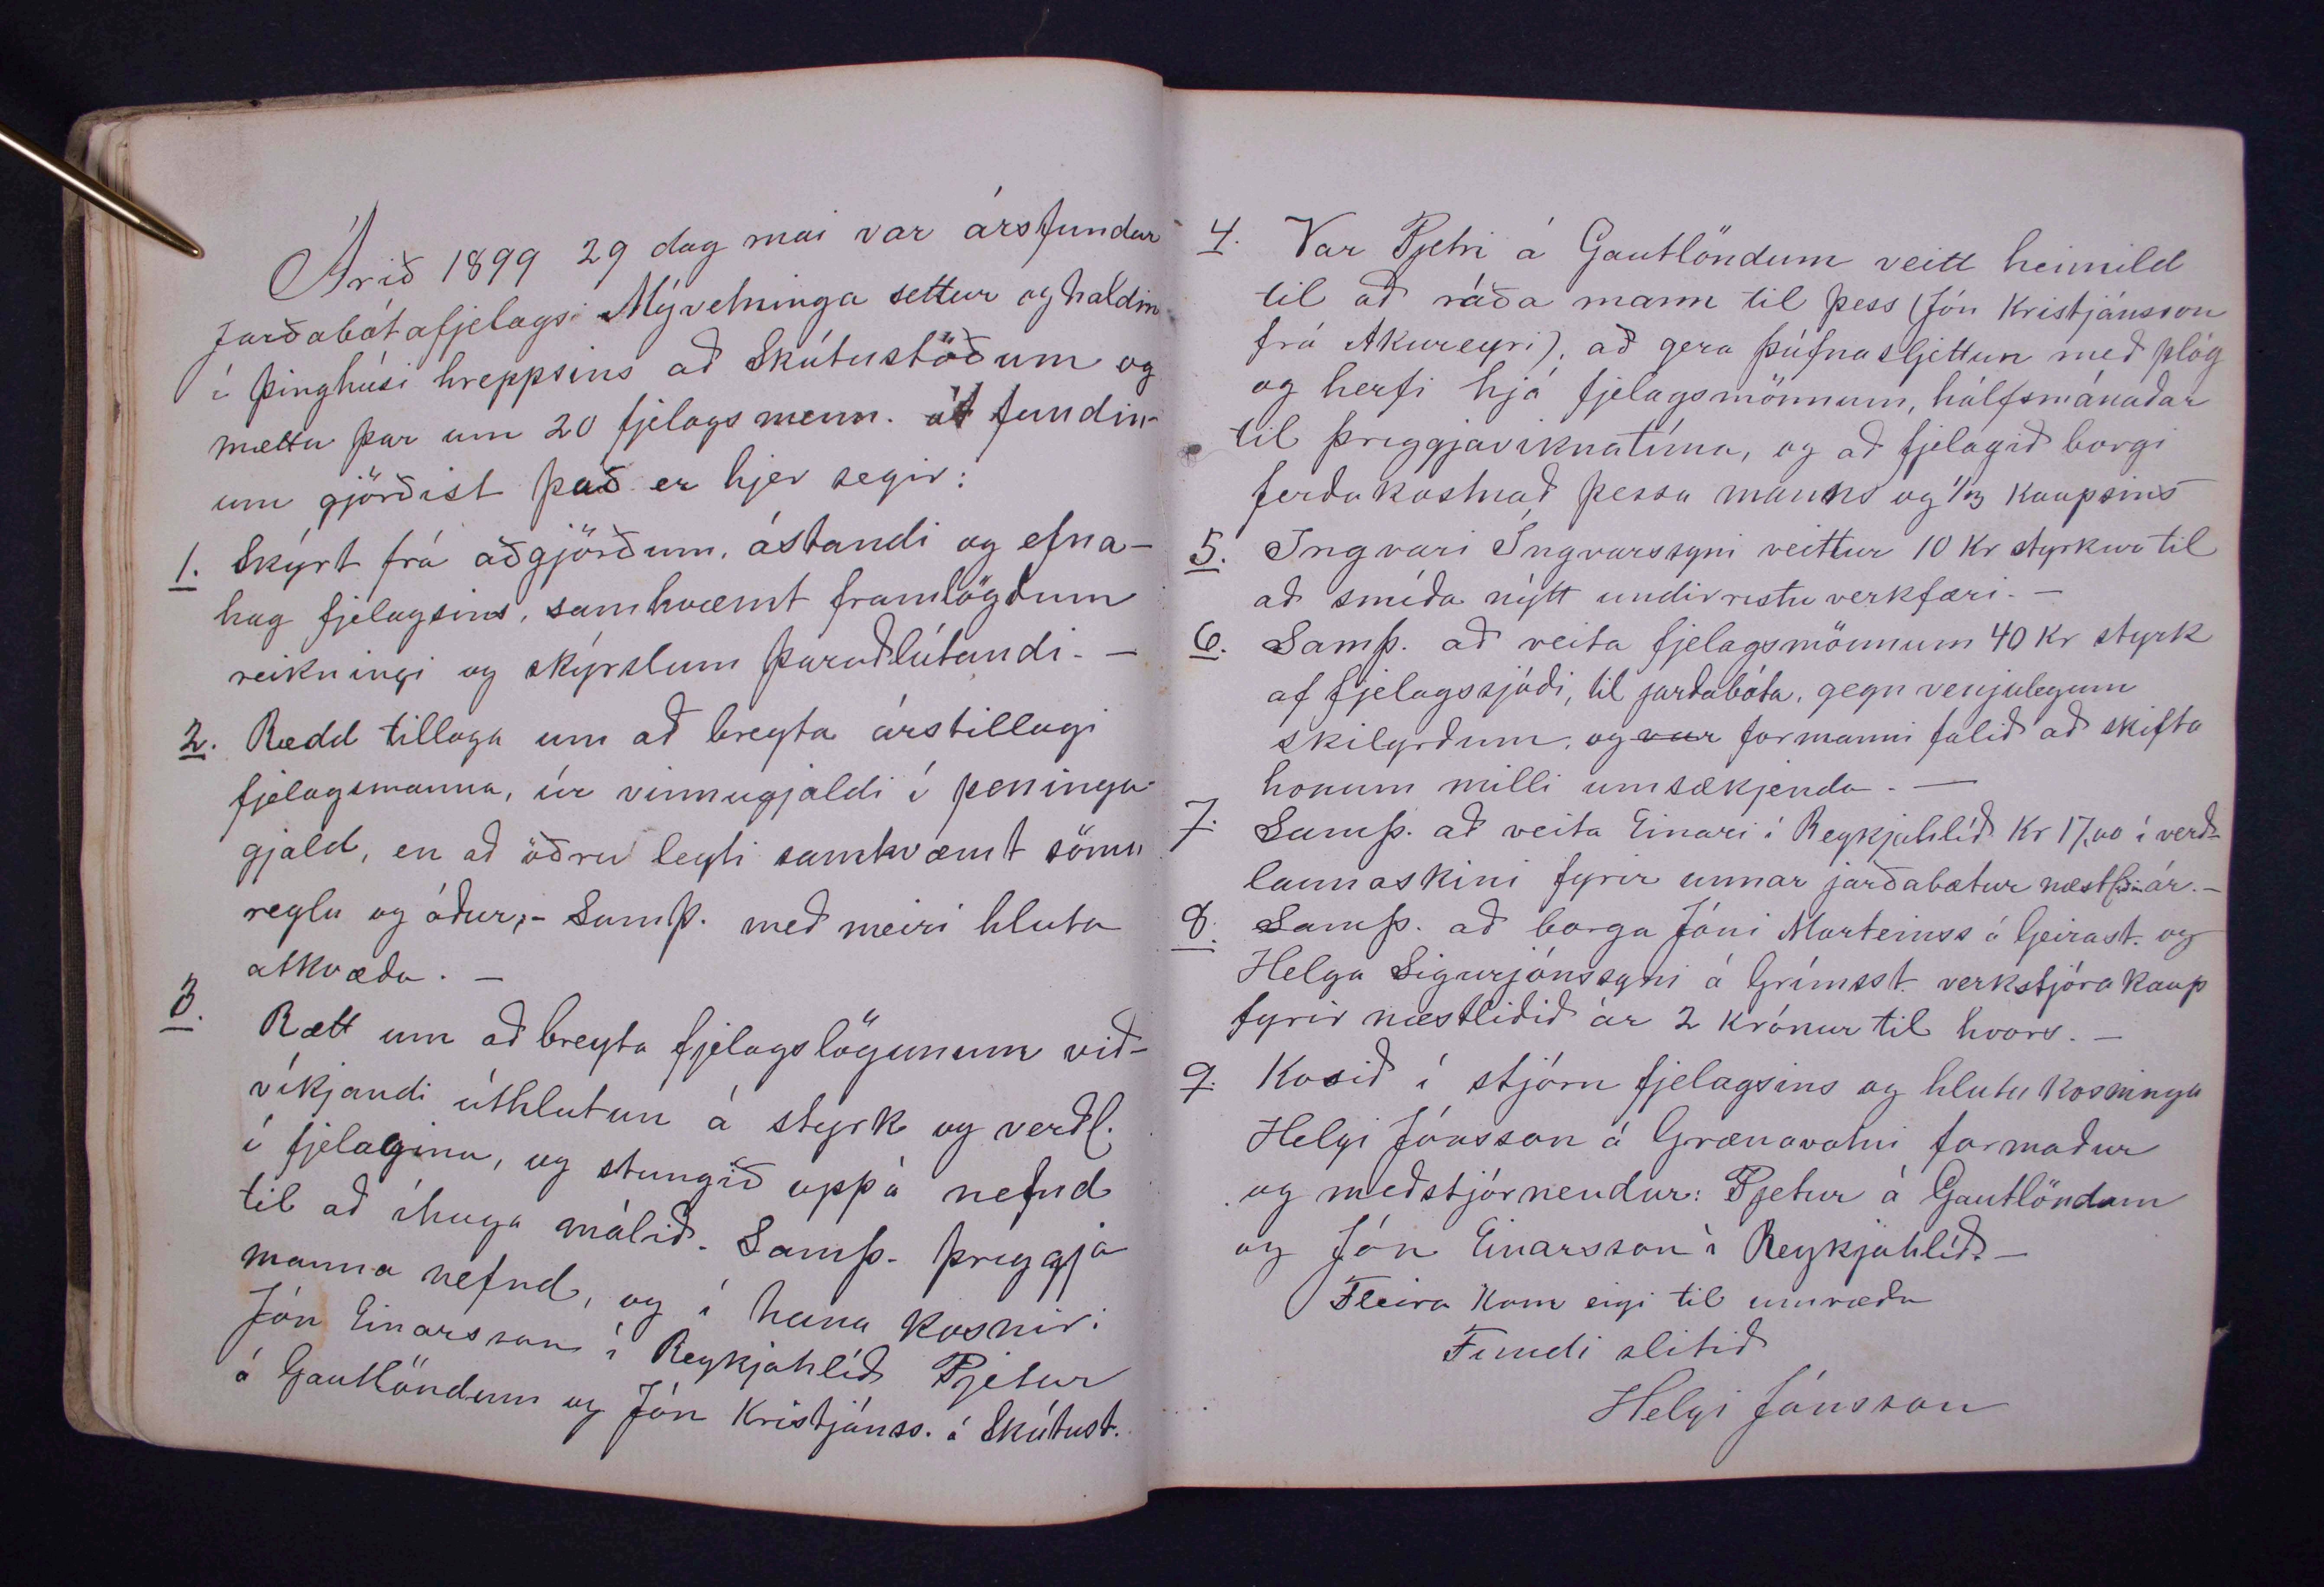 Árið 1899 29 dag mai var ársfundur
Jarðabótafjelags Mývetninga settur og haldin
í þinghúsi hreppsins að Skútustöðum og
mættu þar um 20 fjelagsmenn. át fundin-
um gjörðist það er hjer segir:
1. Skýrt frá aðgjörðum, ástandi og efna-
hag fjelagsins, samkvæmt framlögðum
reikningi og skýrslum þaraðlútandi. -
2. Rædd tillaga um að breyta árstillagi
fjelagsmanna, úr vinnugjaldi í peninga-
gjald, en að öðru leyti samkvæmt sömu
reglu og áður; - Samþ. með meiri hluta
atkvæða. -
3. Rætt um að breyta fjelagslögunum við-
víkjandi úthlutun á styrk og verðl.
í fjelaginu, og stungið uppá nefnd
til að íhuga málið. Samþ. þriggja
manna nefnd, og í hana kosnir:
Jón Einarsson í Reykjahlíð Pjetur
á Gautlöndum og Jón Kristjánss. á Skútust.
4. Var Pjetri á Gautlöndum veitt heimild
til að ráða mann til þess (Jón Kristjánsson
frá Akureyri), að gera þúfnasljettun með plóg
og herfi hjá fjelagsmönnum, hálfsmánaðar
til þriggjaviknatíma, og að fjelagið borgi
ferðakostnað þessa manns og 1/3 kaupsins
5. Ingvari Ingvarssyni veittur 10 Kr styrkur til
að smíða nýtt undirristu verkfæri. -
6. Samþ. að veita fjelagsmönnum 40 Kr styrk
af fjelagssjóði, til jarðabóta, gegn venjulegum
skilyrðum, og var formanni falið að skifta
honum milli umsækjenda. -
7. Samþ. að veita Einari í Reykjahlíð Kr 17,00 í verð-
launaskini fyrir unnar jarðabætur næstliðin ár. -
8. Samþ. að borga Jóni Marteinss á Geirast. og
Helga Sigurjónssyni á Grímsst. verkstjóra kaup
fyrir næstliðið ár 2 krónur til hvors. -
9. Kosið í stjórn fjelagsins og hlutu kosninga
Helgi Jónsson á Grænavatni formaður
og meðstjórnendur: Pjetur á Gautlöndum
og Jón Einarsson í Reykjahlíð. -
Fleira kom eigi til umræðu
Fundi slitið
Helgi Jónsson